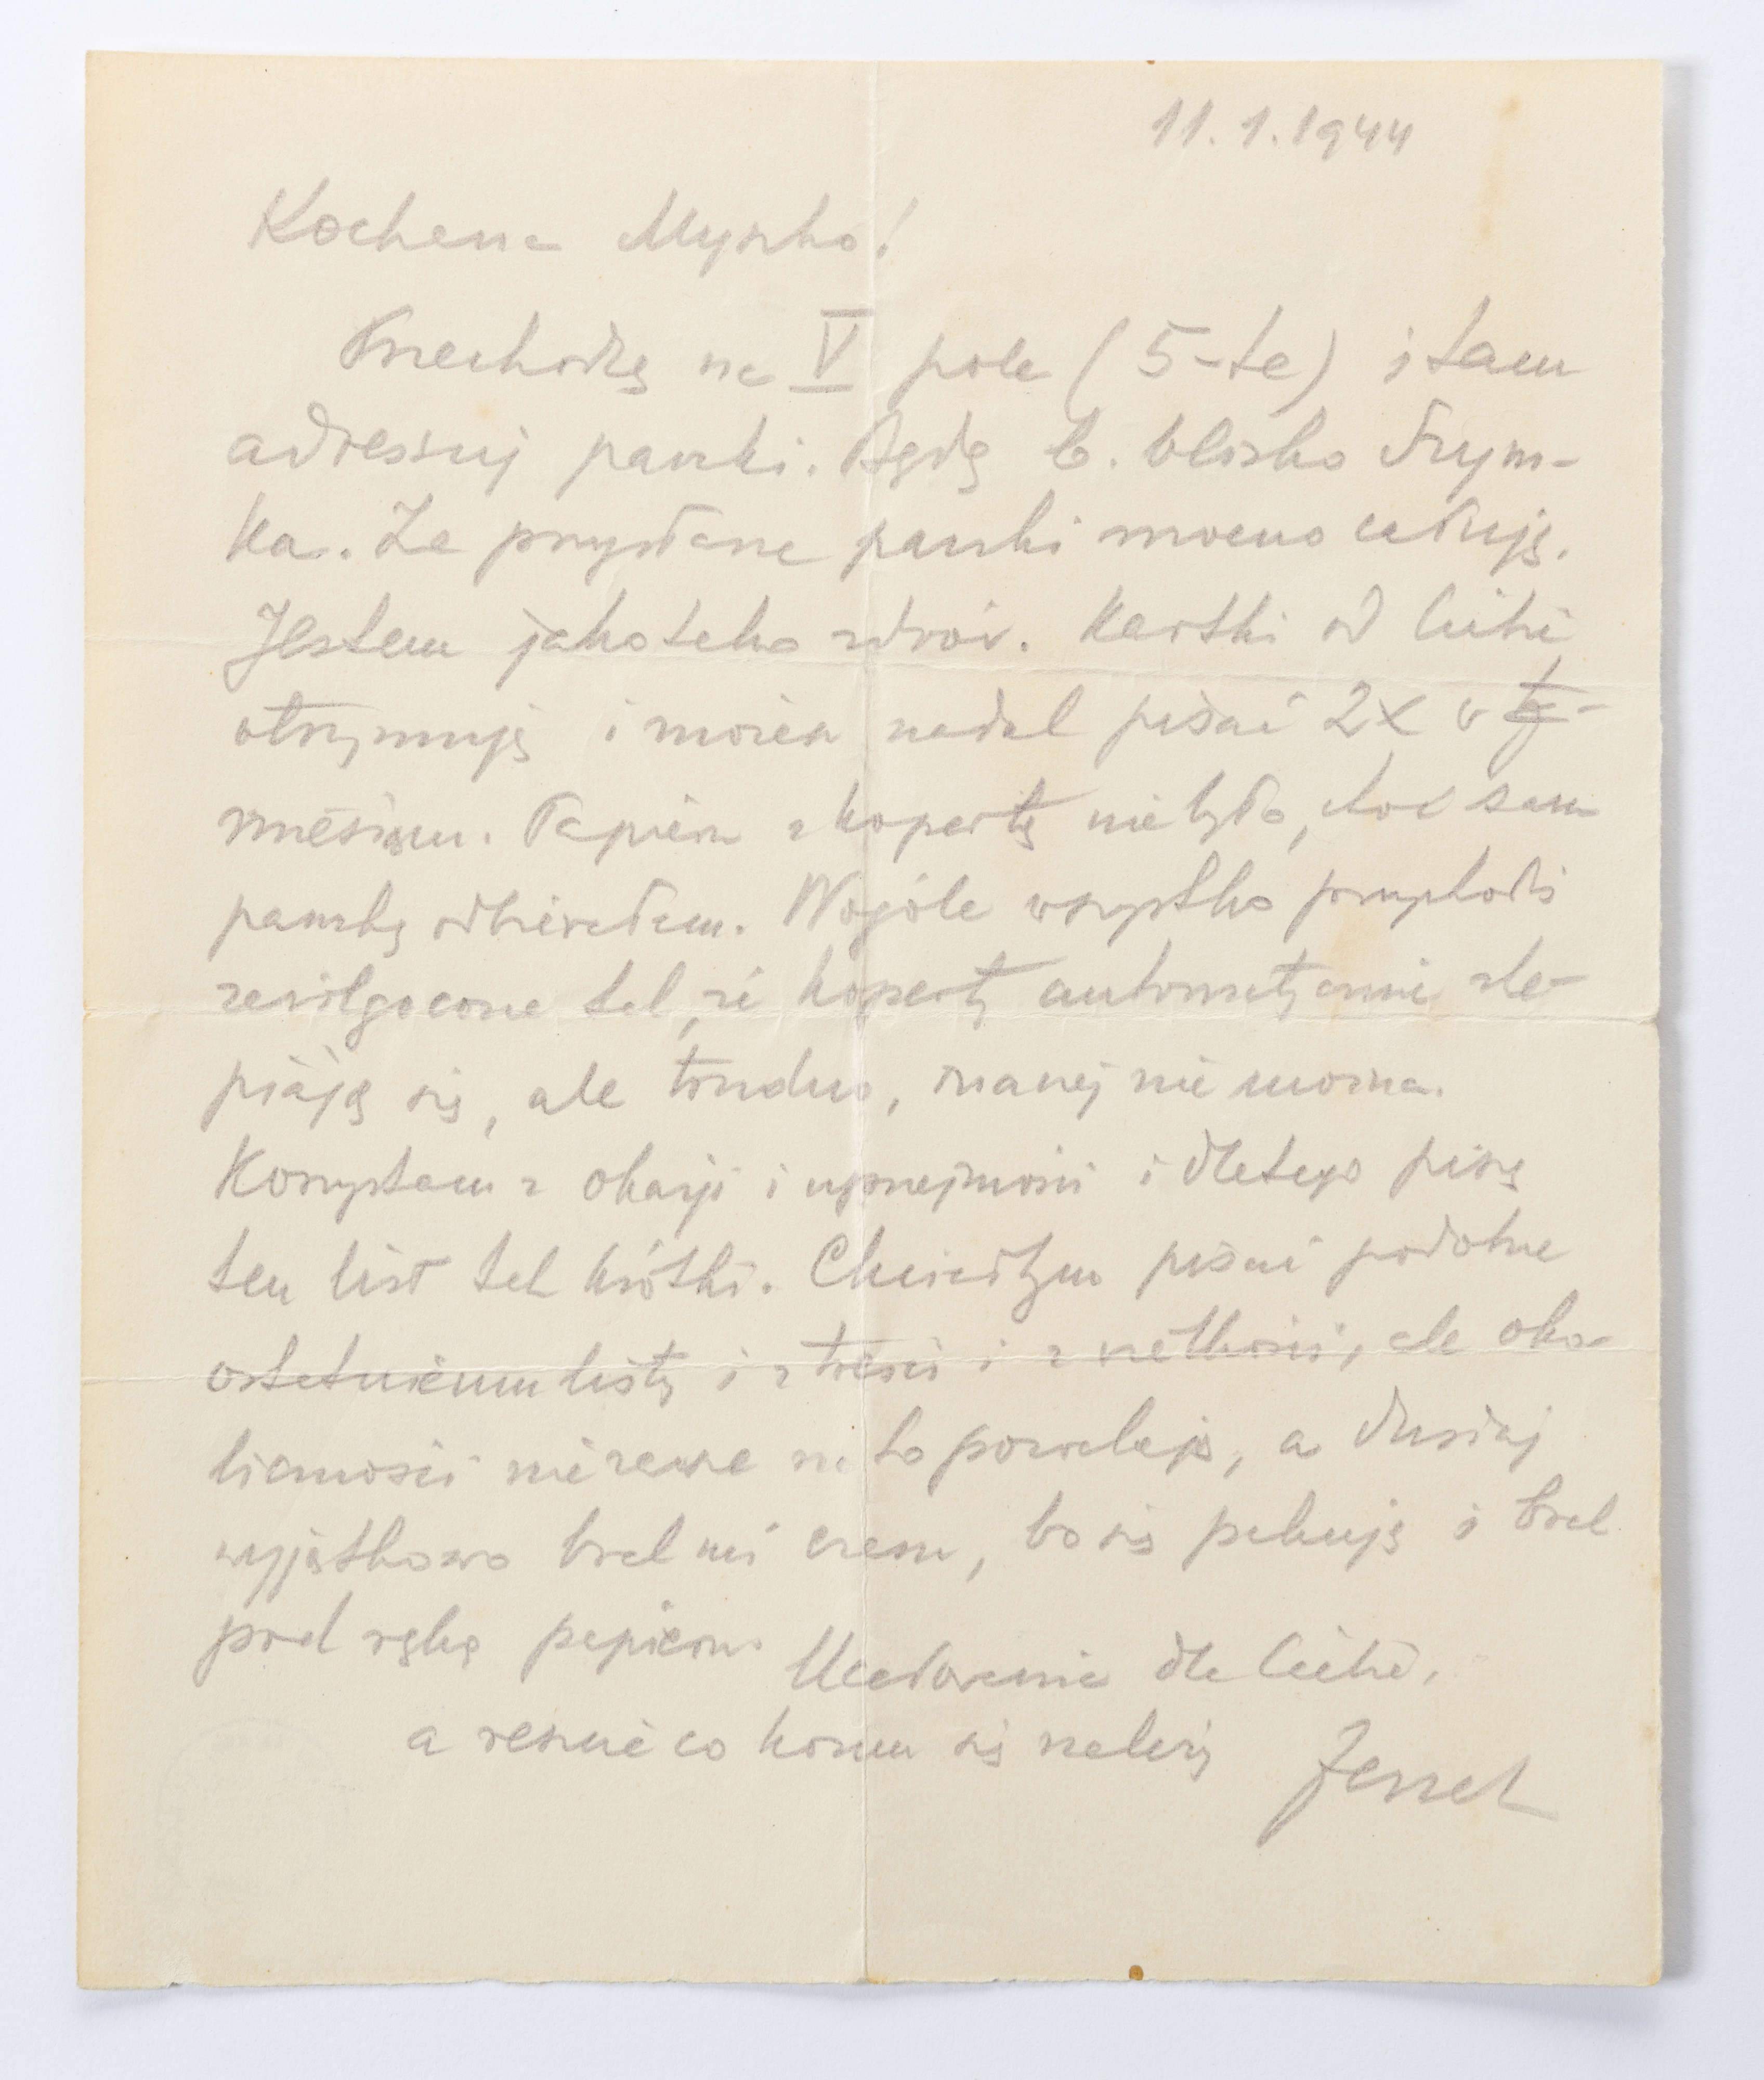 11.1.1944
Kochana Myszko!
Przechodzę na V pole (5-te) i tam
adressuj paczki. Będę b. blisko Szym-
ka. Za przysłane paczki mocno całuję.
Jestem jako tako zdrów. Kartki od Ciebie
otrzymuję i możesz nadal pisać 2x w
miesiącu. Papieru z kopertą nie było, choć sam
paczkę odbierałem. Wogóle wszystko przychodzi
zawilgocone tak, że koperty automatycznie zle-
piają się, ale trudno, inaczej nie można.
Korzystam z okazji i uprzejmości i dlatego piszę
ten list tak krótki. Chciałbym pisać podobne
ostatniemu listy i z treści i z wielkości, ale oko-
liczności nie zawsze na to pozwalają, a dzisiaj
wyjątkowo brak mi czasu, bo się pakuję i brak
pod ręką papieru. Ucałowania dla Ciebie,
a reszcie co komu się należy Jurek